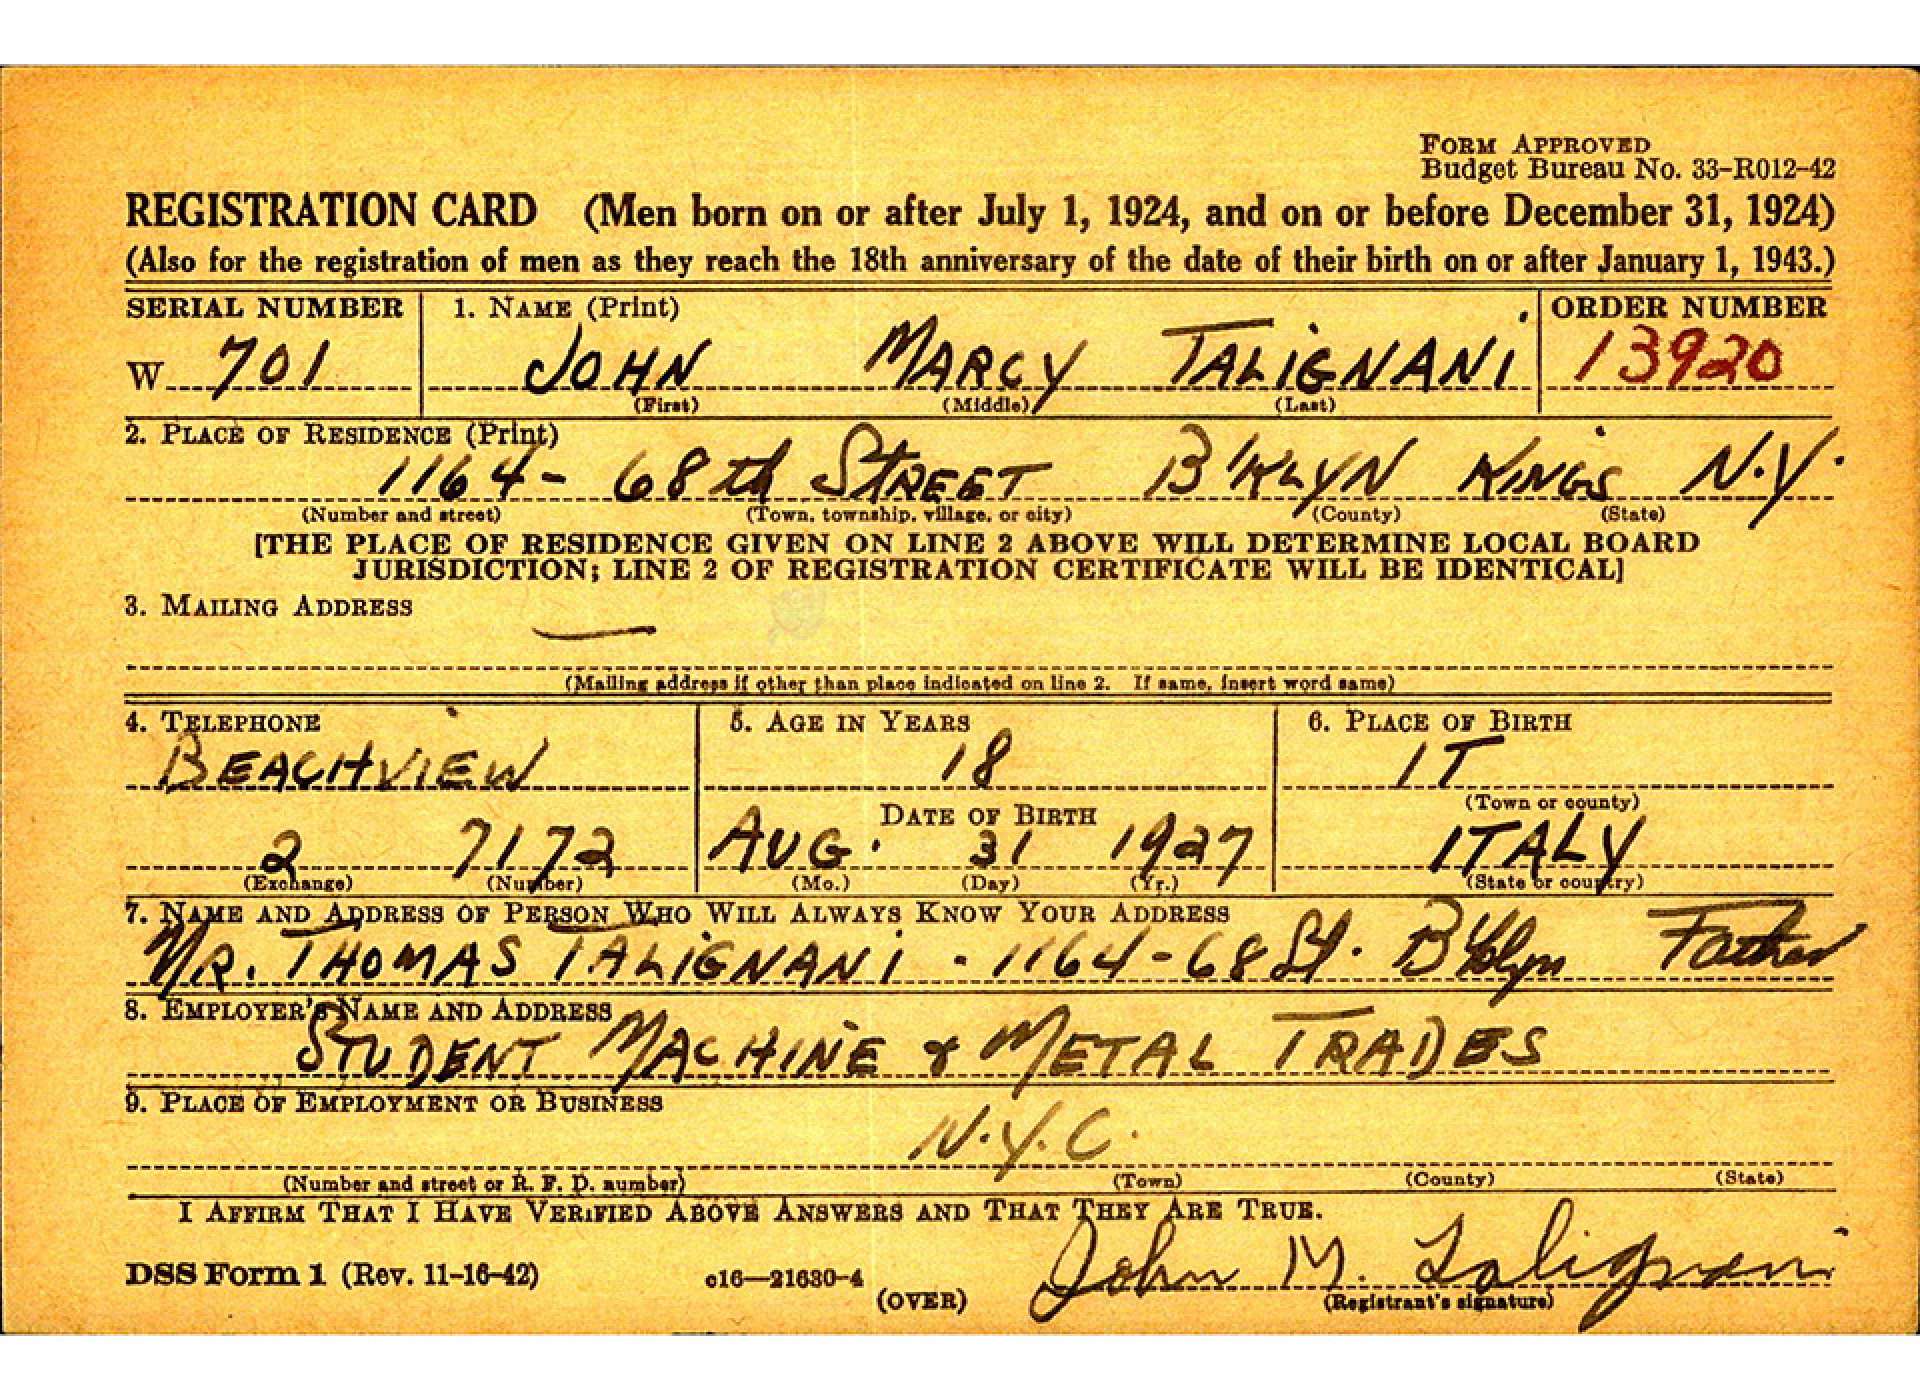 FORM APPROVED
Budget Bureau No. 33-R012-42
REGISTRATION CARD (Men born on or after July 1, 1924, and on or before December 31, 1924)
(Also for the registration of men as they reach the 18th anniversary of the date of their birth on or after January 1, 1943.)
SERIAL NUMBER 1. NAME (Print) ORDER NUMBER
W 701 JOHN MARCY TALIGNANI 13920
(First) (Middle) (Last)
2. PLACE OF RESIDENCE (Print)
1164 - 68th STREET B'KLYN KINGS N.Y.
(Number and street) (Town, township, village, or city) (County) (State)
[THE PLACE OF RESIDENCE GIVEN ON LINE 2 ABOVE WILL DETERMINE LOCAL BOARD
JURISDICTION; LINE 2 OF REGISTRATION CERTIFICATE WILL BE IDENTICAL]
3. MAILING ADDRESS
—
(Mailing address if other than place indicated on line 2. If same, insert word same)
4. TELEPHONE 5. AGE IN YEARS 6. PLACE OF BIRTH
BEACHVIEW 18 IT
(Town or county)
DATE OF BIRTH
2 7172 AUG. 31 1927 ITALY
(Exchange) (Number) (Mo.) (Day) (Yr.) (State or country)
7. NAME AND ADDRESS OF PERSON WHO WILL ALWAYS KNOW YOUR ADDRESS
MR. THOMAS TALIGNANI - 1164-68 St. B'klyn Father
8. EMPLOYER'S NAME AND ADDRESS
STUDENT MACHINE & METAL TRADES
9. PLACE OF EMPLOYMENT OR BUSINESS
N.Y.C.
(Number and street or R. F. D. number) (Town) (County) (State)
I AFFIRM THAT I HAVE VERIFIED ABOVE ANSWERS AND THAT THEY ARE TRUE.
DSS Form 1 (Rev. 11-16-42) c16—21630-4 John M. Talignani
(OVER) (Registrant's signature)